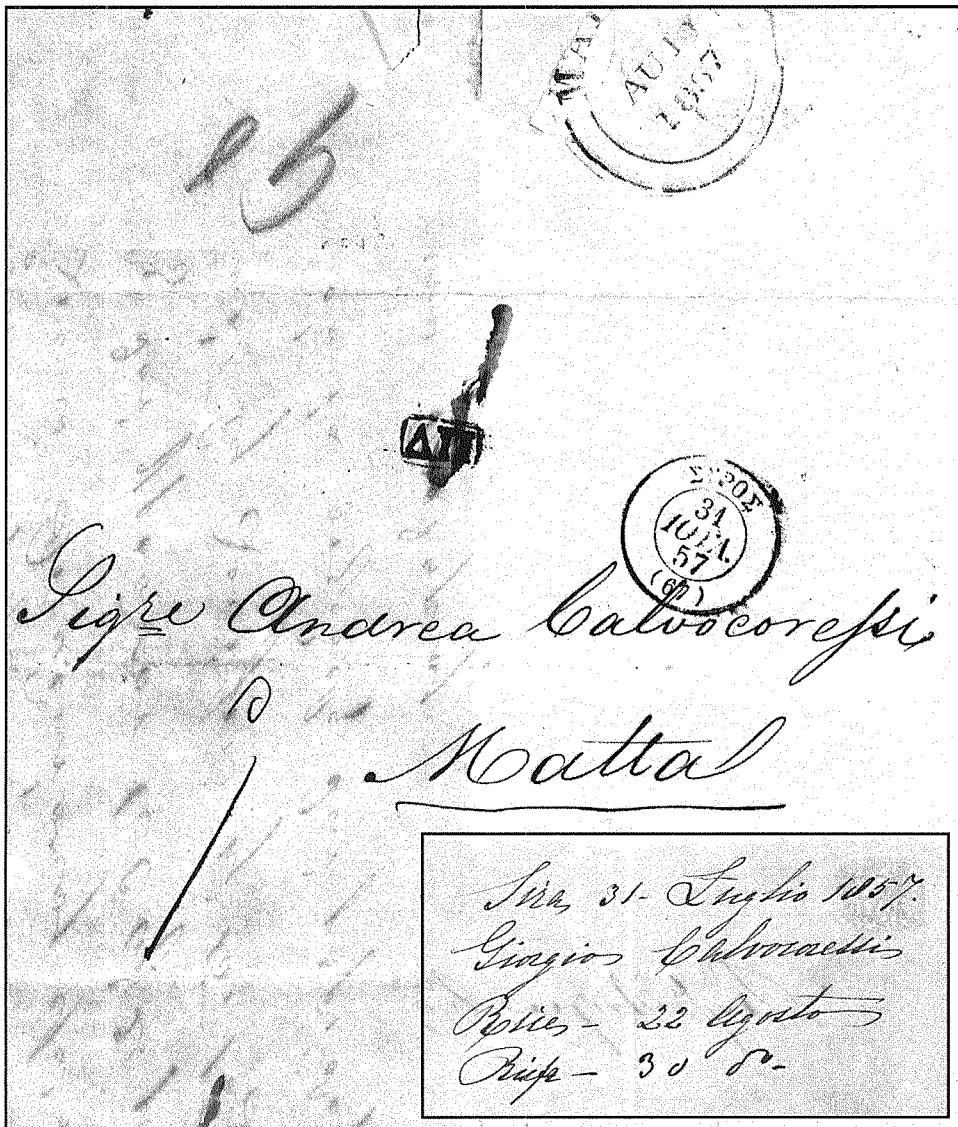 AU 19
1857
ΔΠ
ΣΥΡΟΣ
31
ΙΟΥΛ.
57
(67)
Sigre Andrea Calvocoressi
Malta
Sira 31 - Luglio 1857.
Giorgio Calvocoressi
22 Agosto
30 do -